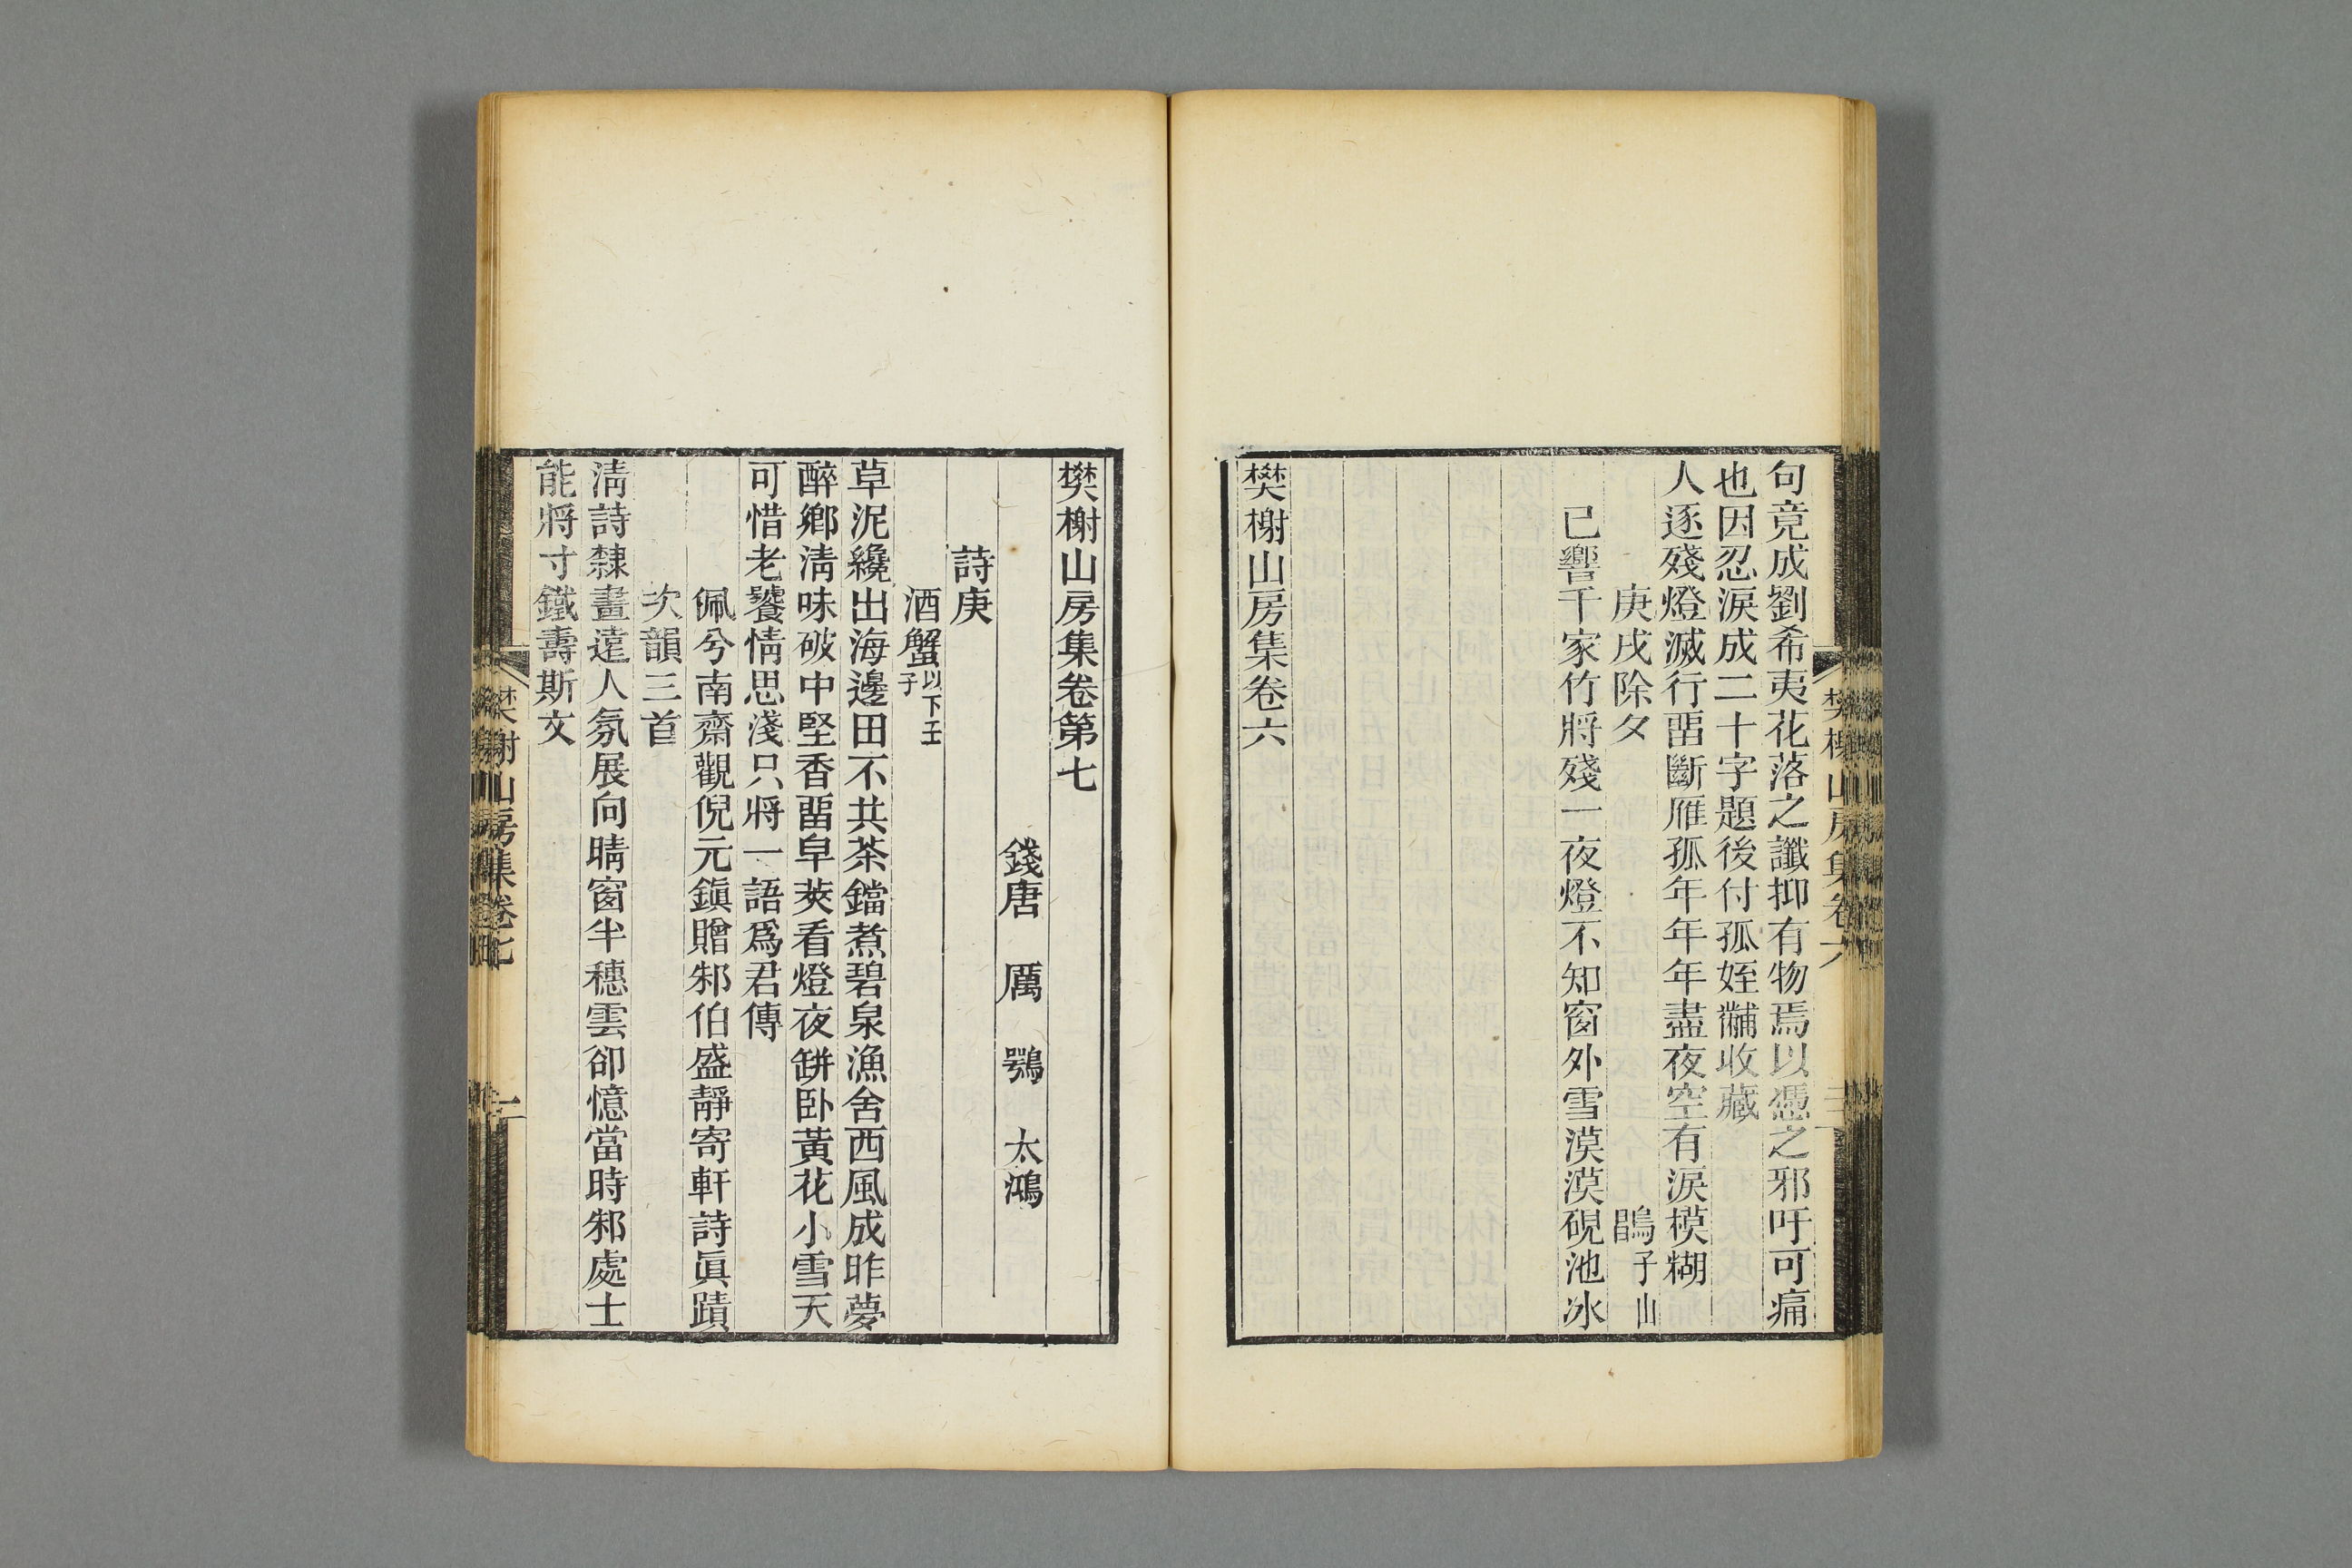 句竟成劉希夷花落之讖抑有物焉以憑之邪吁可痛
也因忍淚成二十字題後付孤姪黼收藏
人逐殘燈滅行畱斷雁孤年年年盡夜空有淚模糊
庚戌除夕 鵾子山
已響千家竹將殘一夜燈不知窗外雪漠漠硯池冰
樊榭山房集卷六
樊榭山房集卷第七
錢唐 厲 鶚 太鴻
詩庚
酒蟹以下壬子
草泥纔出海邊田不共茶鐺煮碧泉漁舍西風成昨夢
醉鄉淸味破中堅香畱皁莢看燈夜餠卧黃花小雪天
可惜老饕情思淺只將一語爲君傳
佩兮南齋觀倪元鎭贈邾伯盛靜寄軒詩眞蹟
次韻三首
淸詩隸畫遠人氛展向晴窗半穗雲卻憶當時邾處士
能將寸鐵壽斯文
樊榭山房集卷七 一